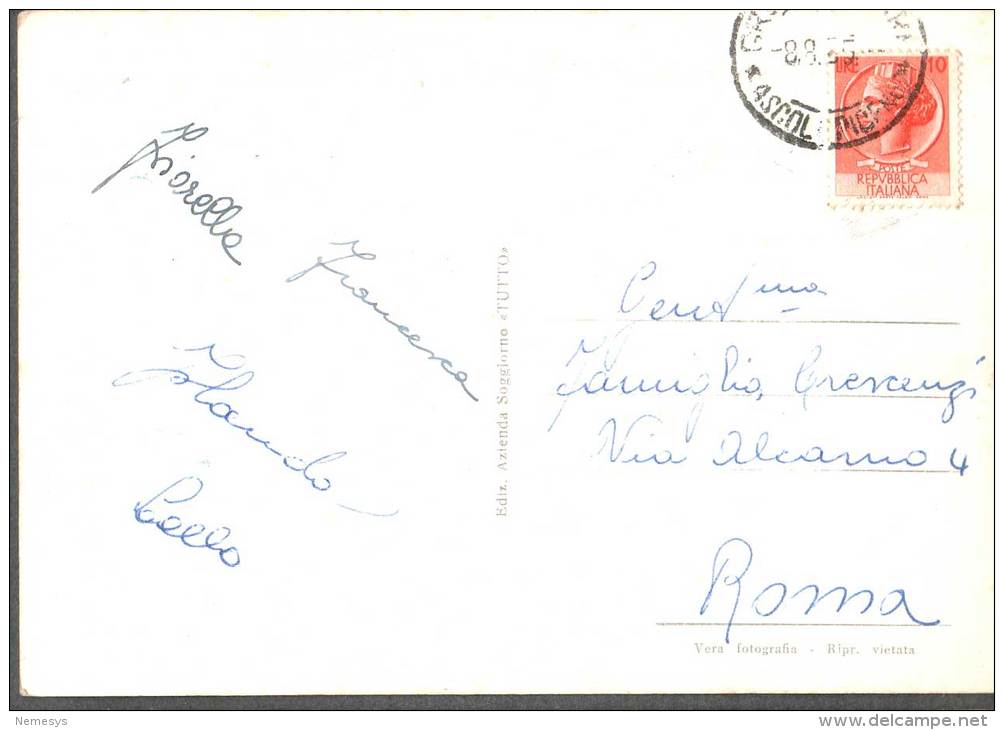 -8.8.55
ASCOLI PICENO
LIRE 10
POSTE
REPVBBLICA
ITALIANA
Fiorella
Francesca
Lello
Ediz. Azienda Soggiorno «TUTTO»
Gent/ma
Famiglia Crescenzi
Via Alcamo 4
Roma
Vera fotografia - Ripr. vietata
Nemesys
www.delcampe.net